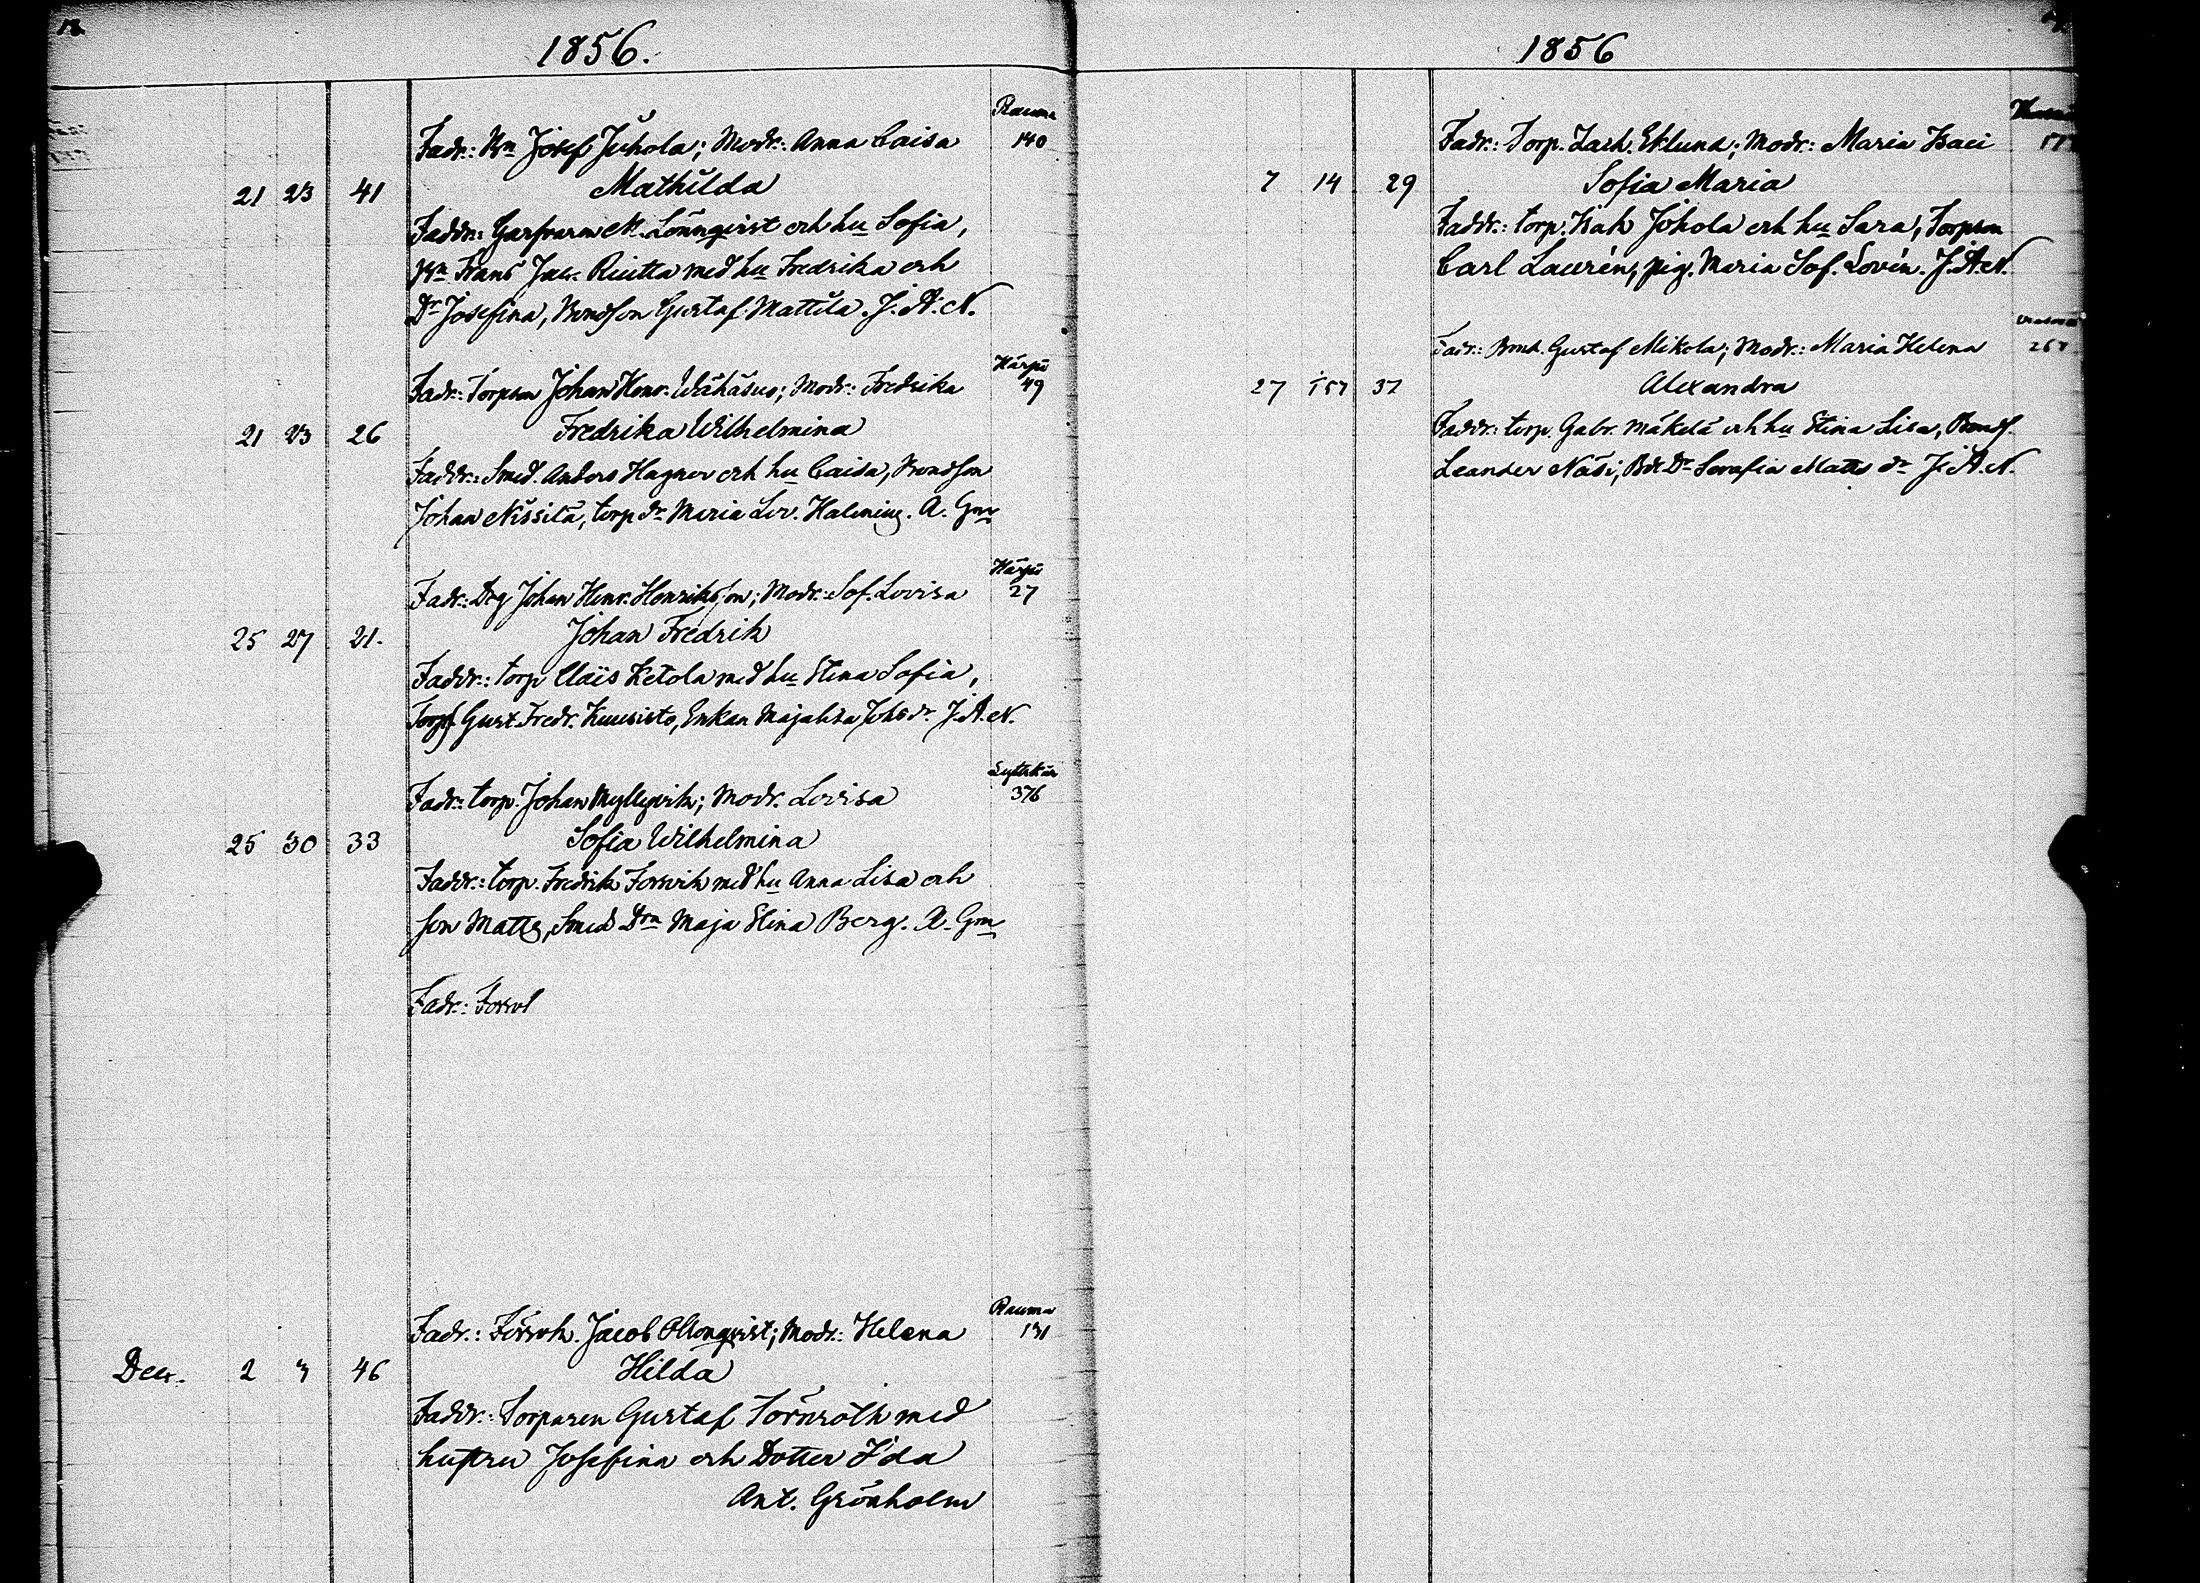 1856.
Rauma
Fadr.: Bn Josef Juhola; Modr.: Anna Caisa 140
21 23 41 Mathilda
Faddr.: Garfvaren M. Lönnqvist och hu Sofia,
Bn Frans Jac. Riutta med hu Fredrika och
Dr Josefina, Bondson Gustaf Mattila. J. A. N.
Härpö
Fadr.: Torparen Johan Henr. Wähäsuo; Modr.: Fredrika 49
21 23 26 Fredrika Wilhelmina
Faddr.: Smed. Anders Hagner och hu Caisa, Bondson
Johan Nissilä, torp dr Maria Lov. Halming. A. Gm
Härpö
Fadr.: Drg Johan Henr. Henriksson; Modr.: Sof. Lovisa 27
25 27 21. Johan Fredrik
Faddr.: torp Claës Ketola med hu Stina Sofia,
Torps Gust. Fredr. Kuusisto, Enkan Majalisa Johsdr. J. A. N.
Lyttskär
Fadr.: torp. Johan Myllyvik; Modr. Lovisa 376
25 30 33 Sofia Wilhelmina
Faddr.: torp. Fredrik Forsvik med hu Anna Lisa och
son Matts, Smed Drn Maja Stina Berg. A. Gm
Fadr.:
Rauma
Fadr.: Jacob Ollonqvist; Modr.: Helena 131
Decr. 2 3 46 Hilda
Faddr.: Torparen Gustaf Törnroth med
hustru Josefina och Dotter Ida
Ant. Grönholm
1856
Fadr.: Torp. Zach. Eklund; Modr.: Maria Isaci
7 14 29 Sofia Maria
Faddr.: torp. Isak Johola och hu Sara, Torpson
Carl Laurén, pig. Maria Sof. Lovén. J. A. N.
Fadr.: Bond. Gustaf Mikola; Modr.: Maria Helena
27 37 Alexandra
Faddr.: torp. Gabr. Mäkelä och hu Stina Lisa, Bonds.
Leander Näsi, Bde Dr Serafia Matts dr J. A. N.